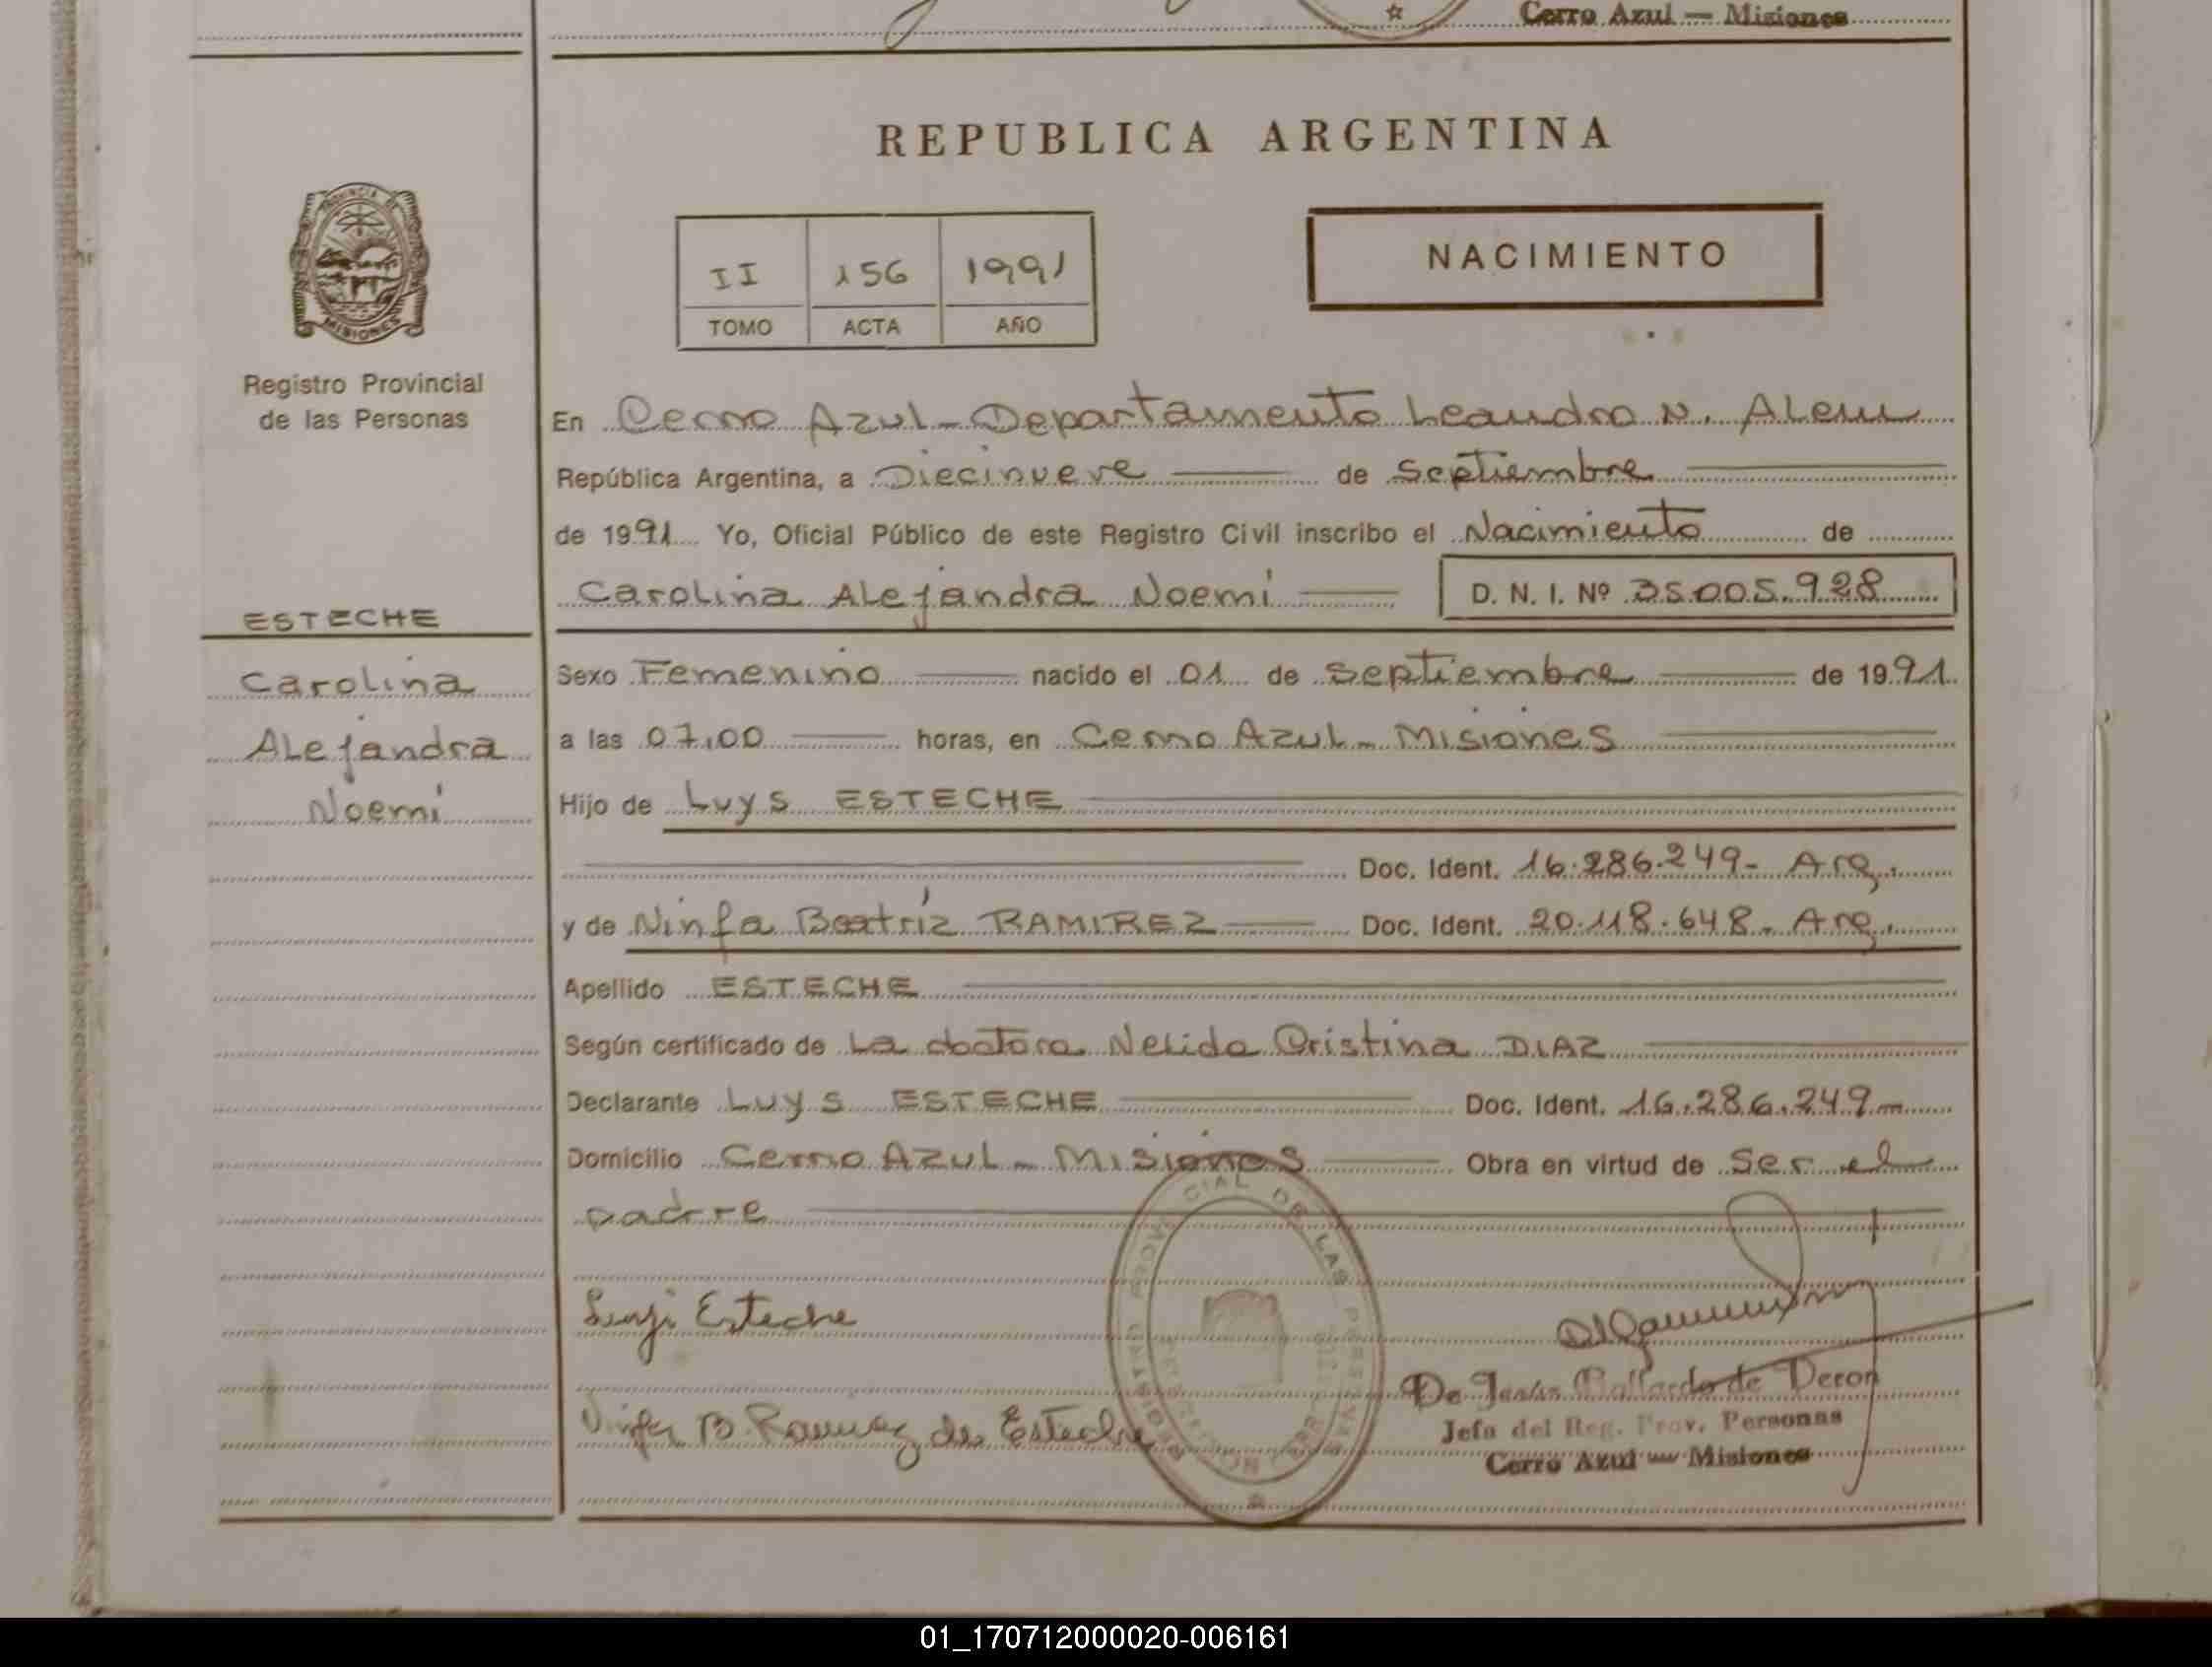 Cerro Azul — Misiones
REPUBLICA ARGENTINA
PROVINCIA DE
MISIONES
Registro Provincial
de las Personas
II 156 1991
TOMO ACTA AÑO
NACIMIENTO
En Cerro Azul - Departamento Leandro N. Alem
República Argentina, a Diecinueve de Septiembre
de 1991 Yo, Oficial Público de este Registro Civil inscribo el Nacimiento de
Carolina Alejandra Noemi D. N. I. Nº 35.005.928
ESTECHE
Carolina
Alejandra
Noemi
Sexo Femenino nacido el 01 de Septiembre de 1991
a las 07,00 horas, en Cerro Azul - Misiones
Hijo de Luys ESTECHE
Doc. Ident. 16.286.249- Arg.
y de Ninfa Beatriz RAMIREZ Doc. Ident. 20.118.648- Arg.
Apellido ESTECHE
Según certificado de La doctora Nelida Cristina DIAZ
Declarante Luys ESTECHE Doc. Ident. 16.286.249-
Domicilio Cerro Azul - Misiones Obra en virtud de Ser el
padre
Esteche
Ninfa B. Ramirez de Esteche
REGISTRO PROVINCIAL DE LAS PERSONAS
De Jesús Gallardo de Deron
Jefa del Reg. Prov. Personas
Cerro Azul — Misiones
01_170712000020-006161